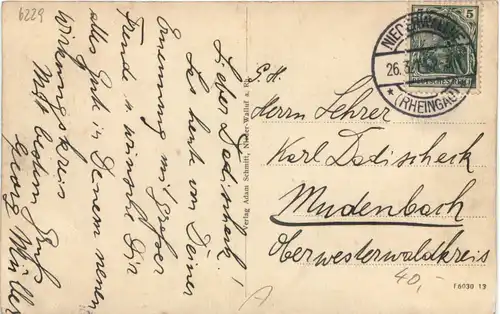 6229
Lieber Dadischeck!
Las heute von Deiner
Ernennung mit großer
Freude u. wünsche Dir
alles Gute in Deinem neuen
Wirkungskreis
Mit bestem Gruß
Georg Müller
Verlag Adam Schmitt, Nieder-Walluf a. Rh.
5
26.3.
* (RHEINGAU)
Herrn Lehrer
Karl Dadischeck
Mudenbach
Oberwesterwaldkreis
40,-
F6030 13